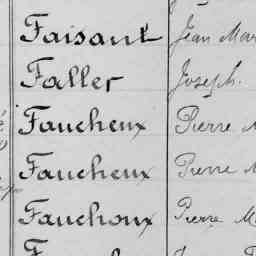 Faisant Jean Mar
Faller Joseph.
Faucheux Pierre M
Faucheux Pierre M
Fauchoux Pierre M